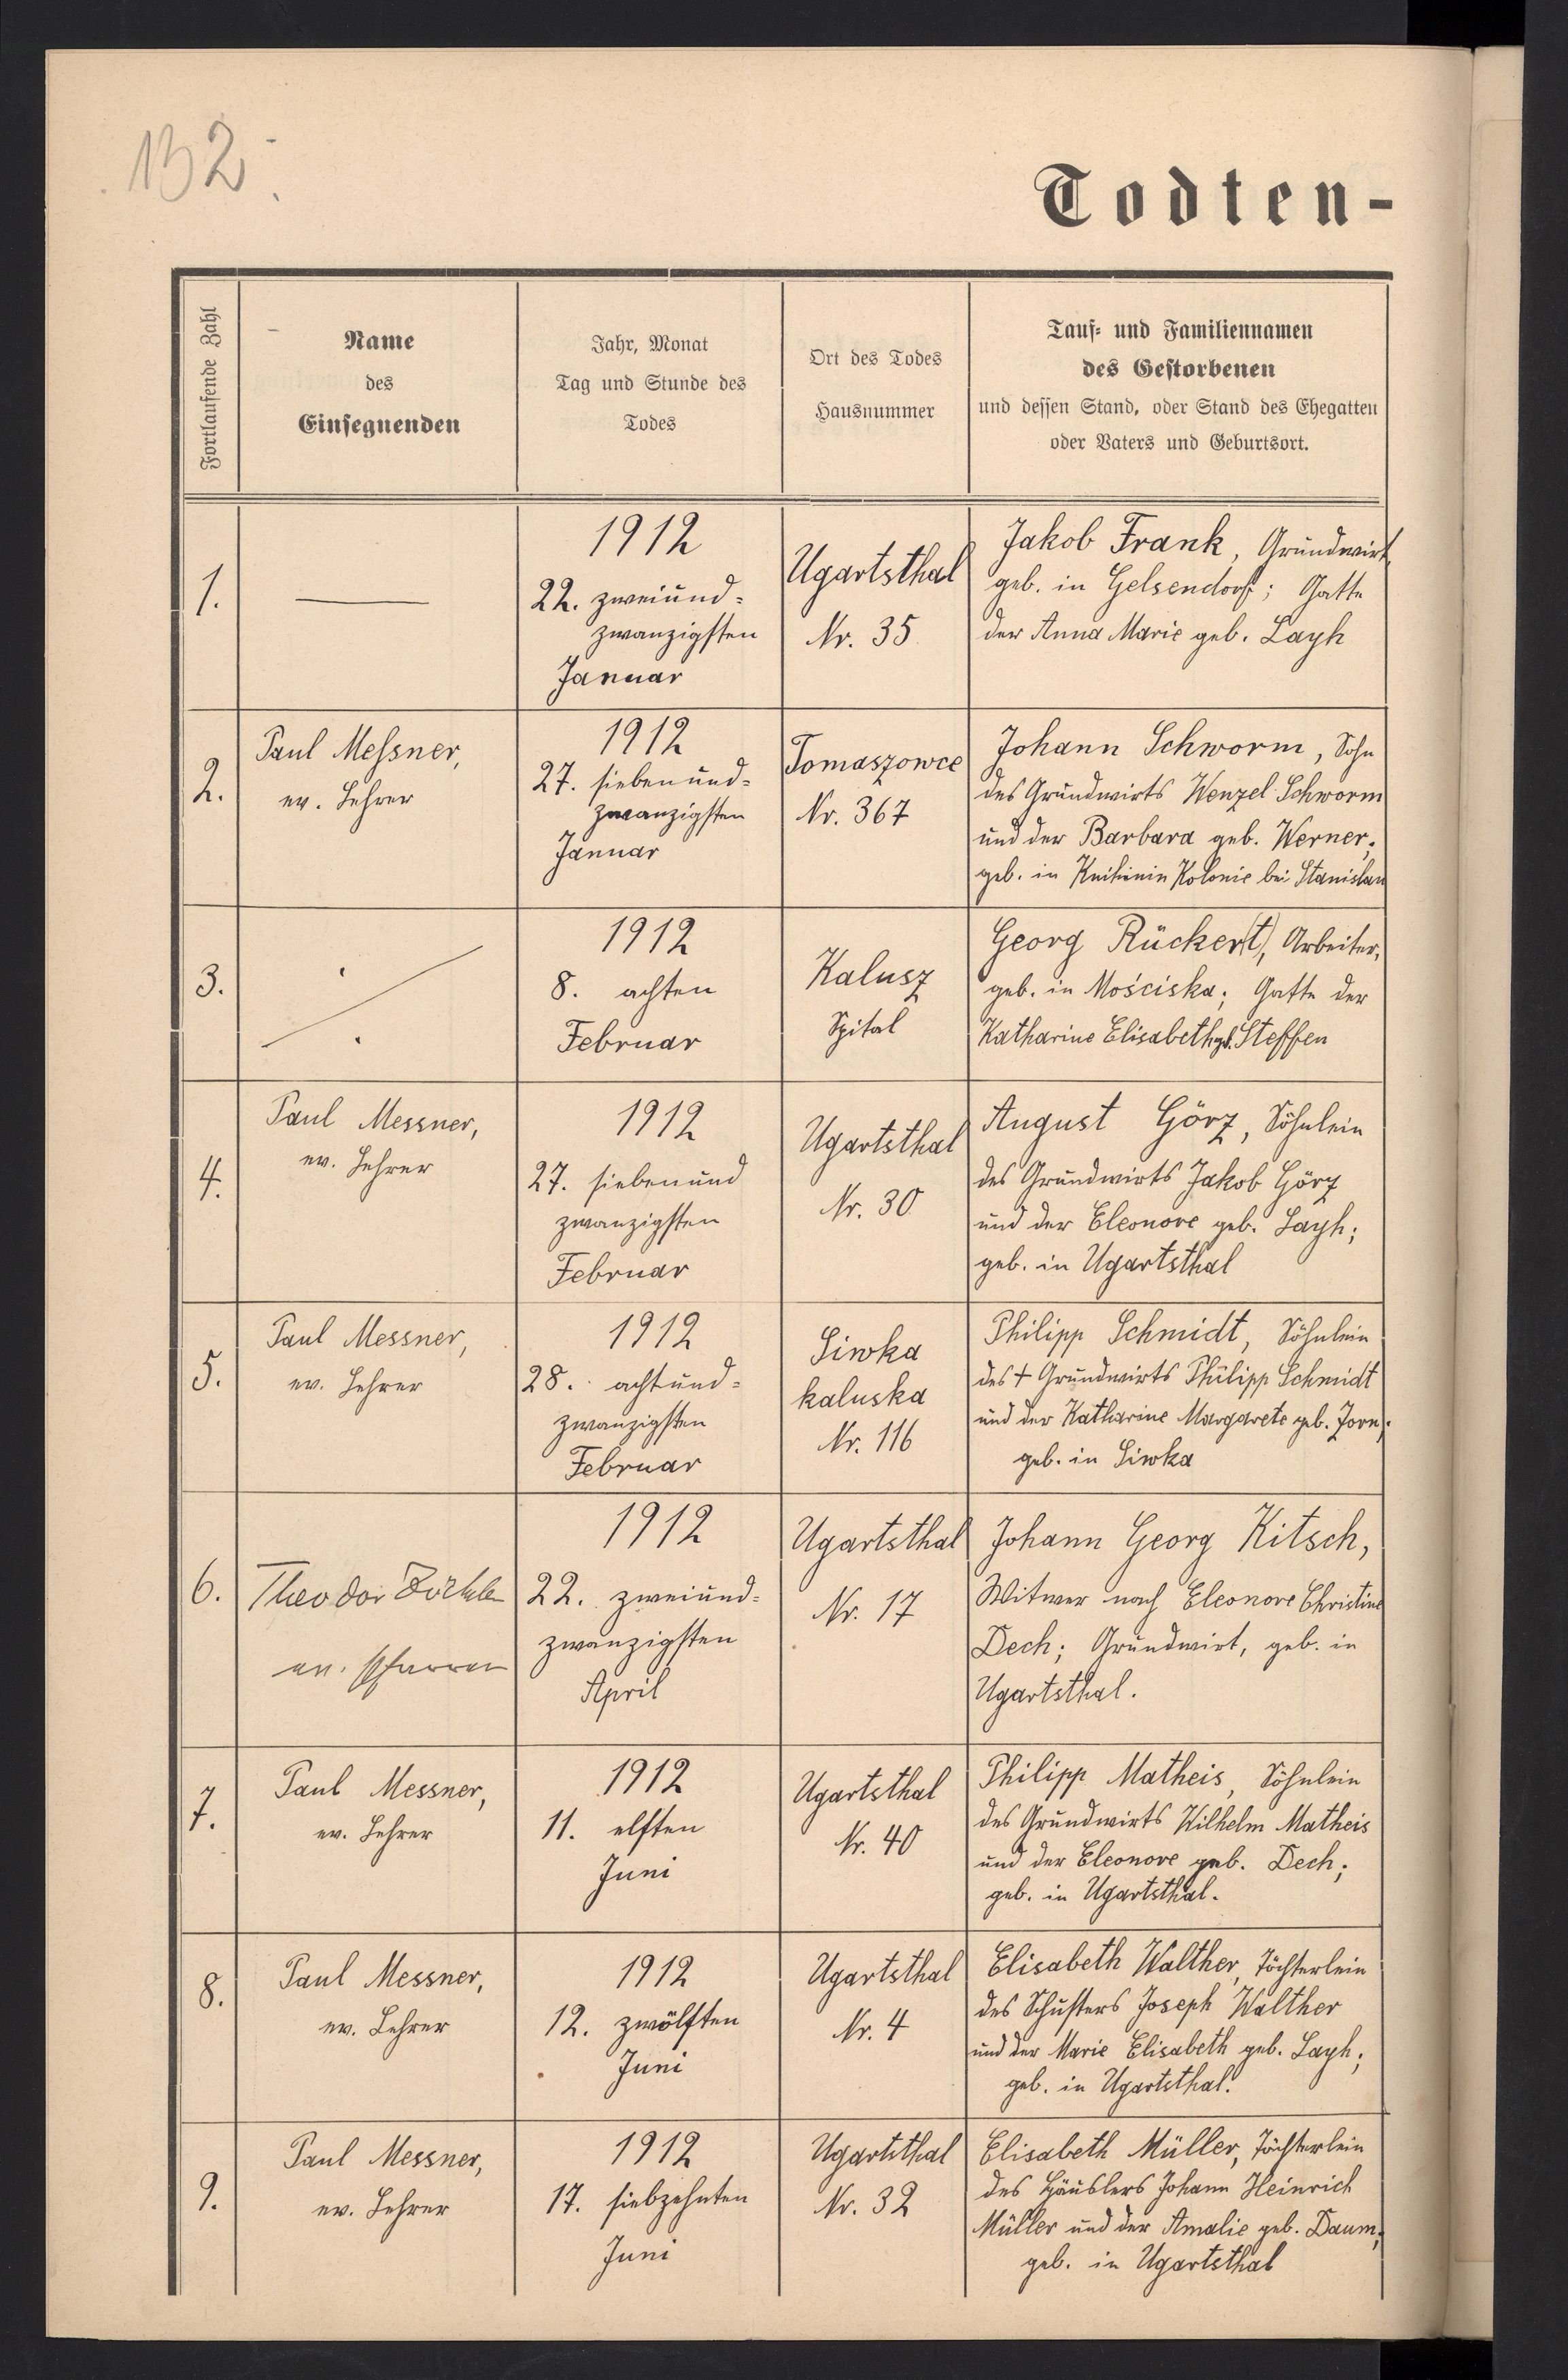 132
Todten-
Fortlaufende Zahl
Name
des
Einsegnenden
Jahr, Monat
Tag und Stunde des
Todes
Ort des Todes
Hausnummer
Tauf- und Familiennamen
des Gestorbenen
und dessen Stand, oder Stand des Ehegatten
oder Vaters und Geburtsort.
1.
1912
22. zweiund-
zwanzigsten
Januar
Ugartsthal
Nr. 35
Jakob Frank, Grundwirt,
geb. in Gelsendorf; Gatte
der Anna Marie geb. Layh
2.
Paul Meſsner,
ev. Lehrer
1912
27. siebenund-
zwanzigsten
Januar
Tomaszowce
Nr. 367
Johann Schworm, Sohn
des Grundwirts Wenzel Schworm
und der Barbara geb. Werner;
geb. in Knihinin Kolonie bei Stanislau
3.
1912
8. achten
Februar
Kalusz
Spital
Georg Rücker(t), Arbeiter,
geb. in Mościska; Gatte der
Katharine Elisabeth gb. Steffen
4.
Paul Messner,
ev. Lehrer
1912
27. siebenund
zwanzigsten
Februar
Ugartsthal
Nr. 30
August Görz, Söhnlein
des Grundwirts Jakob Görz
und der Eleonore geb. Layh;
geb. in Ugartsthal
5.
Paul Messner,
ev. Lehrer
1912
28. achtund-
zwanzigsten
Februar
Siwka
kaluska
Nr. 116
Philipp Schmidt, Söhnlein
des + Grundwirts Philipp Schmidt
und der Katharine Margarete geb. Jorn;
geb. in Siwka
6.
Theodor
ev. Pfarrer
1912
22. zweiund-
zwanzigsten
April
Ugartsthal
Nr. 17
Johann Georg Kitsch,
Witwer nach Eleonore Christine
Dech; Grundwirt, geb. in
Ugartsthal.
7.
Paul Messner,
ev. Lehrer
1912
11. elften
Juni
Ugartsthal
Nr. 40
Philipp Matheis, Söhnlein
des Grundwirts Wilhelm Matheis
und der Eleonore geb. Dech;
geb. in Ugartsthal.
8.
Paul Messner,
ev. Lehrer
1912
12. zwölften
Juni
Ugartsthal
Nr. 4
Elisabeth Walther, Töchterlein
des Schusters Joseph Walther
und der Marie Elisabeth geb. Layh;
geb. in Ugartsthal.
9.
Paul Messner,
ev. Lehrer
1912
17. siebzehnten
Juni
Ugartsthal
Nr. 32
Elisabeth Müller, Töchterlein
des Häuslers Johann Heinrich
Müller und der Amalie geb. Daum;
geb. in Ugartsthal